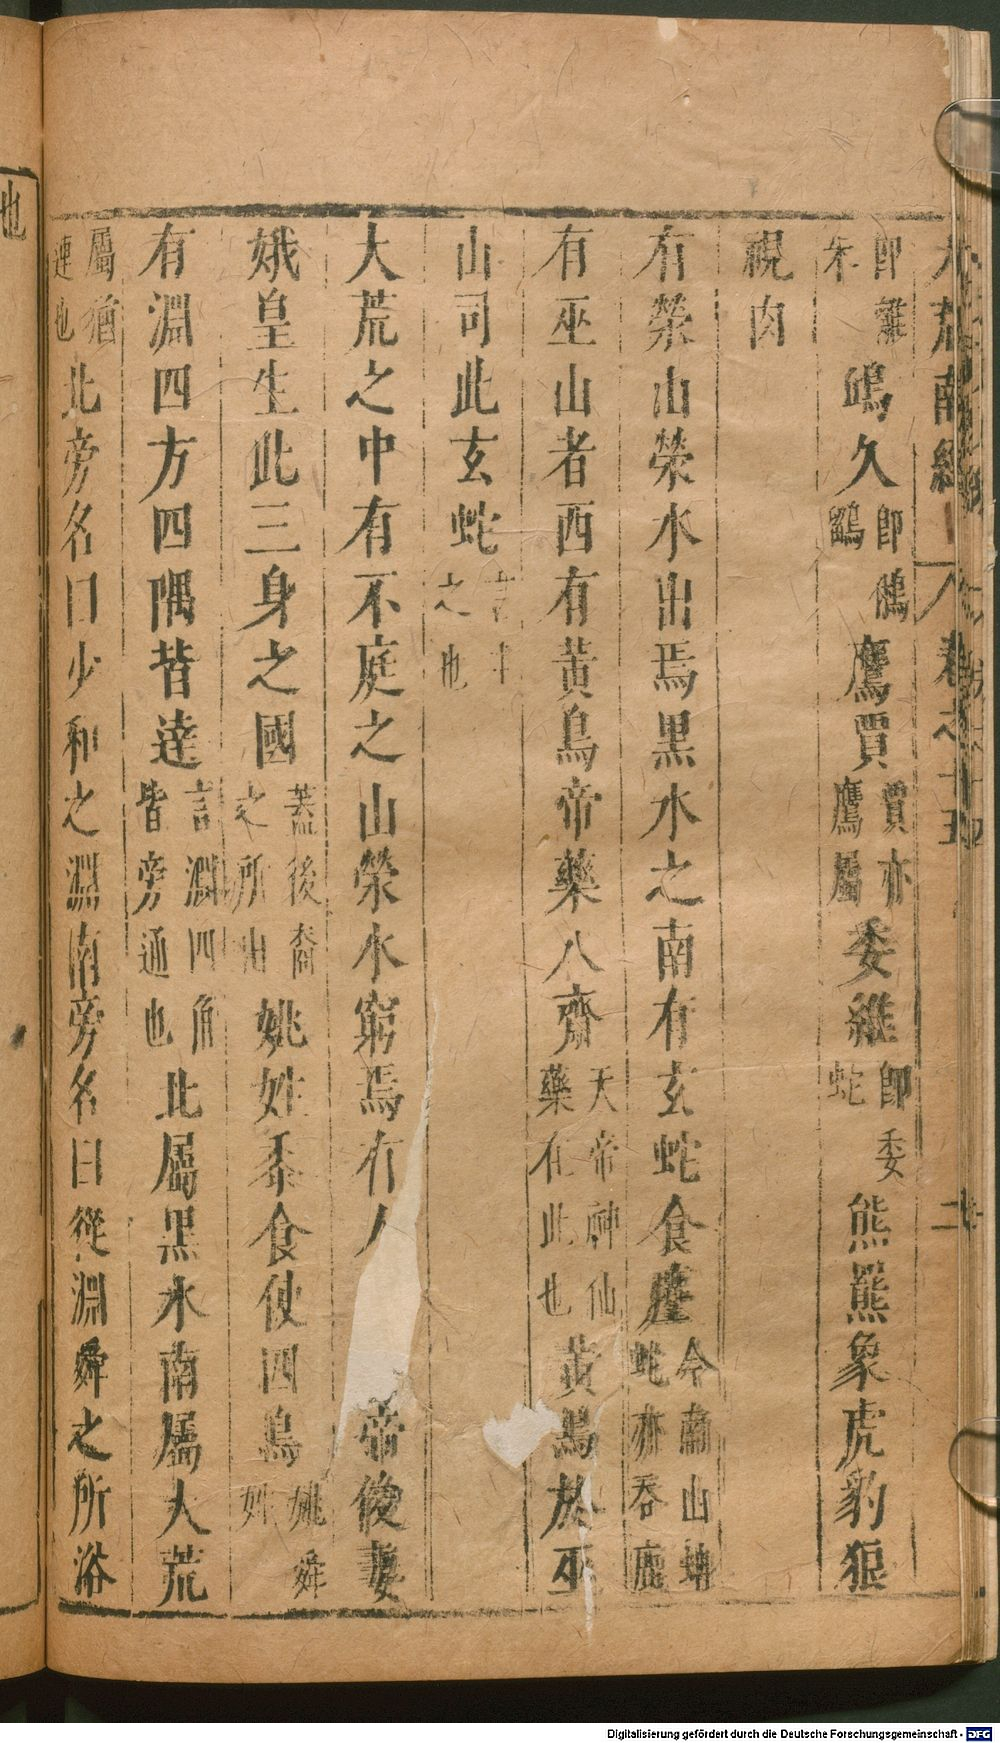 即離朱鴟久即鵂鶹鷹賈賈亦鷹屬委維即委蛇熊羆象虎豹狼
視肉
有榮山榮水出焉黑水之南有玄蛇食麈今南山蚺蛇亦吞鹿
有巫山者西有黃鳥帝藥八齋天帝神仙藥在此也黃鳥於巫
山司此玄蛇之也
大荒之中有不庭之山榮水窮焉有人帝俊妻
娥皇生此三身之國蓋後裔之所出姚姓黍食使四鳥姚舜姓
有淵四方四隅皆達言淵四角皆旁通也北屬黑水南屬大荒
屬猶連也北旁名曰少和之淵南旁名曰從淵舜之所浴
也
Digitalisierung gefördert durch die Deutsche Forschungsgemeinschaft - DFG